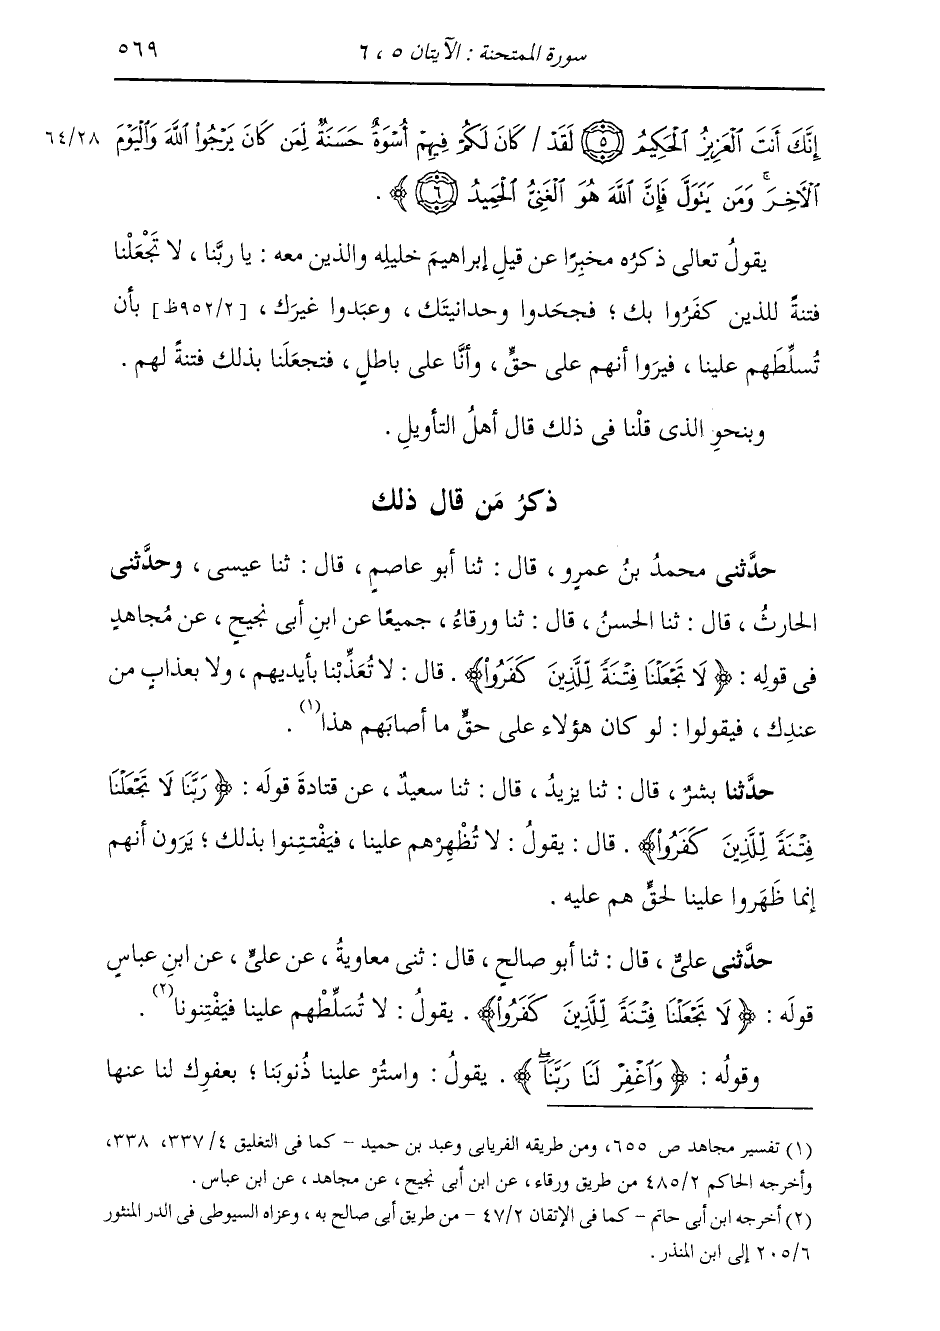 سورة الممتحنة : الآيتان ٥ ، ٦ ٥٦٩
إِنَّكَ أَنتَ ٱلْعَزِيزُ ٱلْحَكِيمُ ٥ لَقَدْ / كَانَ لَكُمْ فِيهِمْ أُسْوَةٌ حَسَنَةٌ لِّمَن كَانَ يَرْجُوا۟ ٱللَّهَ وَٱلْيَوْمَ ٦٤/٢٨
ٱلْـَٔاخِرَ ۚ وَمَن يَتَوَلَّ فَإِنَّ ٱللَّهَ هُوَ ٱلْغَنِىُّ ٱلْحَمِيدُ ٦ ﴾ .
يقولُ تعالى ذكرُه مخبِرًا عن قيلِ إبراهيمَ خليلِه والذين معه : يا ربَّنا ، لا تَجْعَلْنا
فتنةً للذين كفَرُوا بك ؛ فجحَدوا وحدانيتَك ، وعبَدوا غيرَك ، [٩٥٢/٢ظ] بأن
تُسلِّطَهم علينا ، فيرَوا أنهم على حقٍّ ، وأنَّا على باطلٍ ، فتجعَلَنا بذلك فتنةً لهم .
وبنحوِ الذى قلْنا فى ذلك قال أهلُ التأويلِ .
ذكرُ مَن قال ذلك
حدَّثنى محمدُ بنُ عمرٍو ، قال : ثنا أبو عاصمٍ ، قال : ثنا عيسى ، وحدَّثنى
الحارثُ ، قال : ثنا الحسنُ ، قال : ثنا ورقاءُ ، جميعًا عن ابنِ أبى نجيحٍ ، عن مُجاهدٍ
فى قولِه : ﴿ لَا تَجْعَلْنَا فِتْنَةً لِّلَّذِينَ كَفَرُوا۟ ﴾ . قال : لا تُعَذِّبْنا بأيديهم ، ولا بعذابٍ من
عندِك ، فيقولوا : لو كان هؤلاء على حقٍّ ما أصابَهم هذا(١) .
حدَّثنا بشرٌ ، قال : ثنا يزيدُ ، قال : ثنا سعيدٌ ، عن قتادةَ قولَه : ﴿ رَبَّنَا لَا تَجْعَلْنَا
فِتْنَةً لِّلَّذِينَ كَفَرُوا۟ ﴾ . قال : يقولُ : لا تُظْهِرْهم علينا ، فيَفْتتِنوا بذلك ؛ يَرَون أنهم
إنما ظَهَروا علينا لحقٍّ هم عليه .
حدَّثنى علىٌّ ، قال : ثنا أبو صالحٍ ، قال : ثنى معاويةُ ، عن علىٍّ ، عن ابنِ عباسٍ
قولَه : ﴿ لَا تَجْعَلْنَا فِتْنَةً لِّلَّذِينَ كَفَرُوا۟ ﴾ . يقولُ : لا تُسَلِّطْهم علينا فيَفْتِنونا(٢) .
وقولُه : ﴿ وَٱغْفِرْ لَنَا رَبَّنَآ ۖ ﴾ . يقولُ : واستُرْ علينا ذُنوبَنا ؛ بعفوِك لنا عنها
(١) تفسير مجاهد ص ٦٥٥، ومن طريقه الفريابى وعبد بن حميد - كما فى التغليق ٣٣٧/٤، ٣٣٨،
وأخرجه الحاكم ٤٨٥/٢ من طريق ورقاء ، عن ابن أبى نجيح ، عن مجاهد ، عن ابن عباس .
(٢) أخرجه ابن أبى حاتم - كما فى الإتقان ٤٧/٢ - من طريق أبى صالح به ، وعزاه السيوطى فى الدر المنثور
٢٠٥/٦ إلى ابن المنذر .